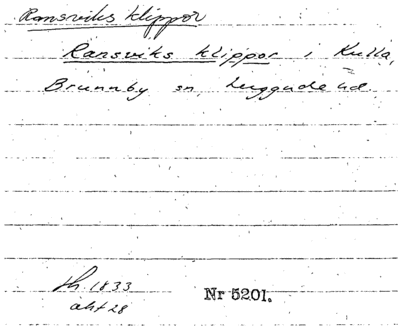 Ransviks klippor
Ransviks klippor i Kulla,
Brunnby sn, Luggude hd.
Fh. 1833
akt 28
Nr 5201.